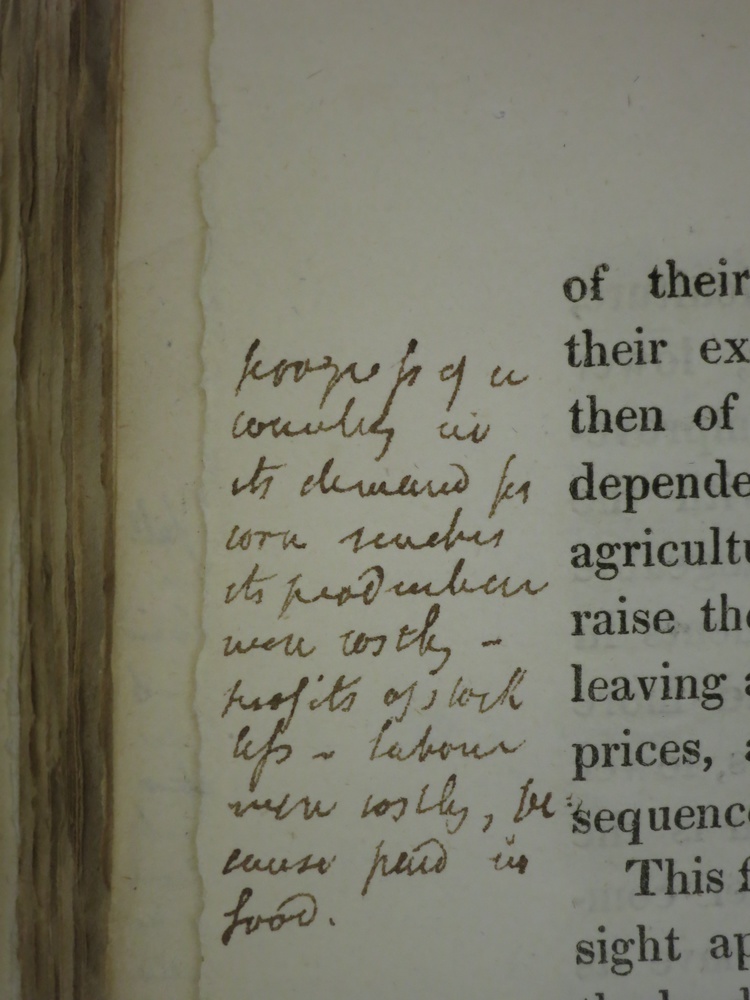 progress of a
country in
its demand for
corn renders
its production
more costly –
profits of stock
less – labour
more costly, be-
cause paid in
food.
of their
their ex
then of
depende
agricultu
raise the
leaving a
prices, a
sequence
This f
sight ap